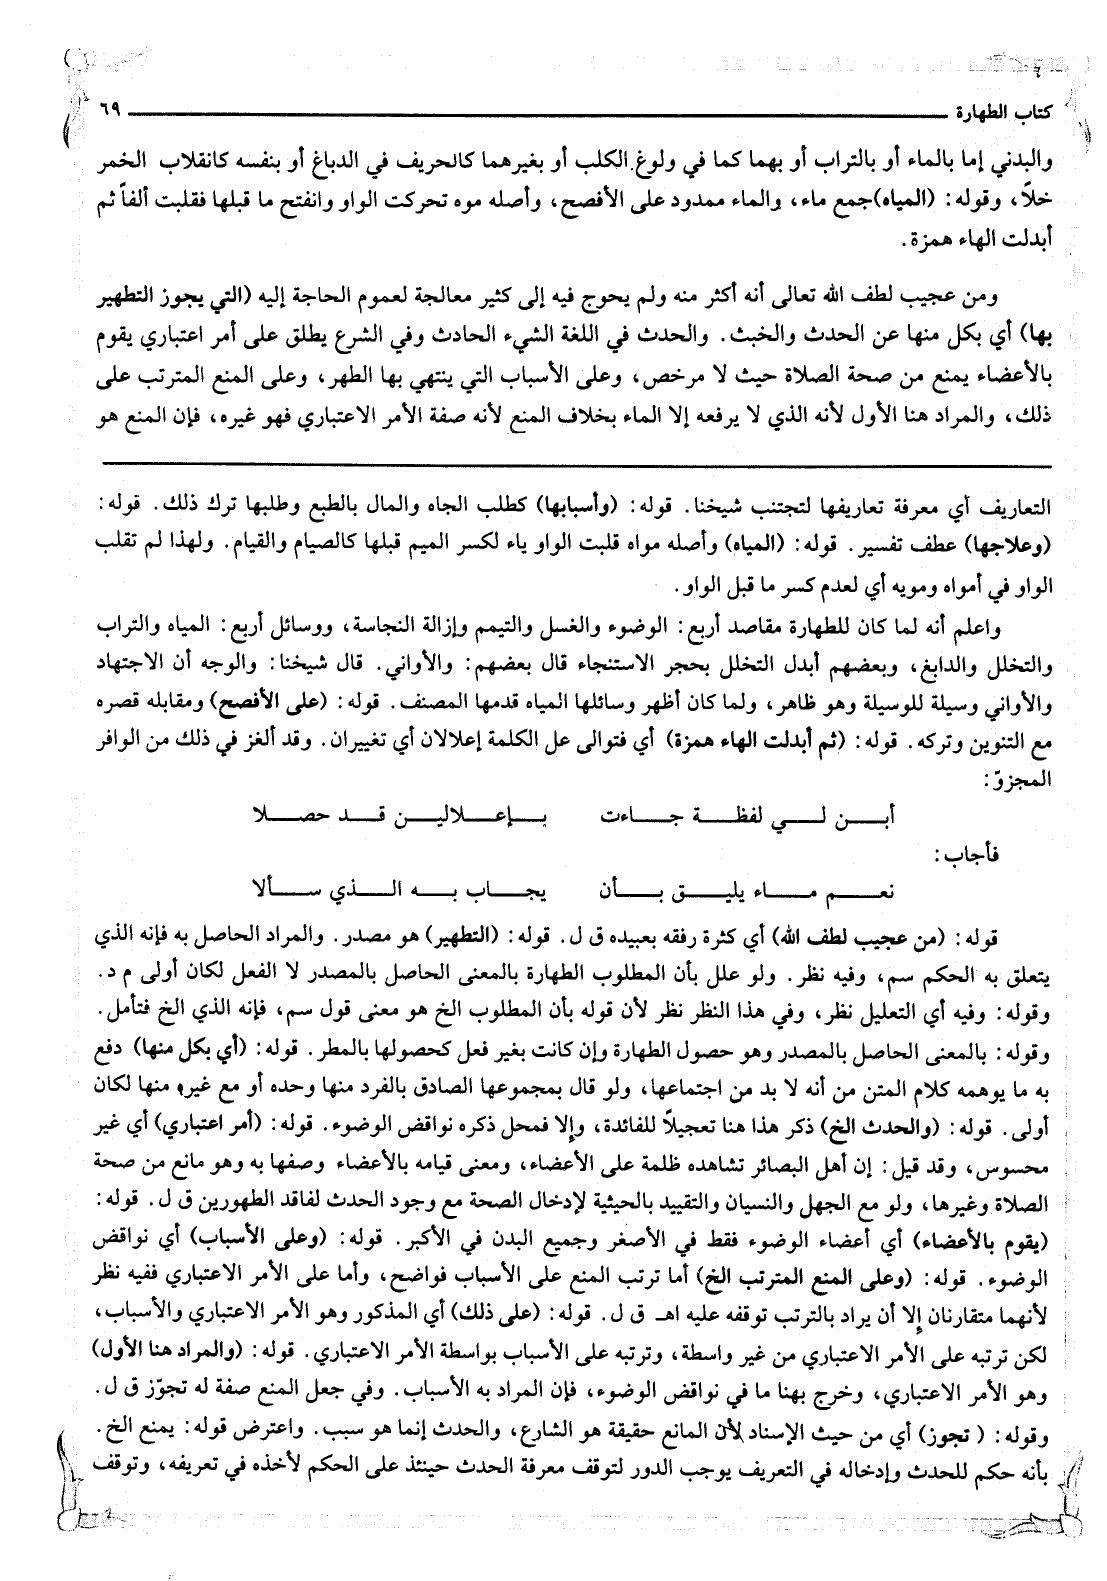 كتاب الطهارة ٦٩
والبدني إما بالماء أو بالتراب أو بهما كما في ولوغ الكلب أو بغيرهما كالحريف في الدباغ أو بنفسه كانقلاب الخمر
خلاً، وقوله: (المياه)جمع ماء، والماء ممدود على الأفصح، وأصله موه تحركت الواو وانفتح ما قبلها فقلبت ألفاً ثم
أبدلت الهاء همزة.
ومن عجيب لطف الله تعالى أنه أكثر منه ولم يحوج فيه إلى كثير معالجة لعموم الحاجة إليه (التي يجوز التطهير
بها) أي بكل منها عن الحدث والخبث. والحدث في اللغة الشيء الحادث وفي الشرع يطلق على أمر اعتباري يقوم
بالأعضاء يمنع من صحة الصلاة حيث لا مرخص، وعلى الأسباب التي ينتهي بها الطهر، وعلى المنع المترتب على
ذلك، والمراد هنا الأول لأنه الذي لا يرفعه إلا الماء بخلاف المنع لأنه صفة الأمر الاعتباري فهو غيره، فإن المنع هو
التعاريف أي معرفة تعاريفها لتجتنب شيخنا. قوله: (وأسبابها) كطلب الجاه والمال بالطبع وطلبها ترك ذلك. قوله:
(وعلاجها) عطف تفسير. قوله: (المياه) وأصله مواه قلبت الواو ياء لكسر الميم قبلها كالصيام والقيام. ولهذا لم تقلب
الواو في أمواه ومويه أي لعدم كسر ما قبل الواو.
واعلم أنه لما كان للطهارة مقاصد أربع: الوضوء والغسل والتيمم وإزالة النجاسة، ووسائل أربع: المياه والتراب
والتخلل والدابغ، وبعضهم أبدل التخلل بحجر الاستنجاء قال بعضهم: والأواني. قال شيخنا: والوجه أن الاجتهاد
والأواني وسيلة للوسيلة وهو ظاهر، ولما كان أظهر وسائلها المياه قدمها المصنف. قوله: (على الأفصح) ومقابله قصره
مع التنوين وتركه. قوله: (ثم أبدلت الهاء همزة) أي فتوالى عل الكلمة إعلالان أي تغييران. وقد ألغز في ذلك من الوافر
المجزوّ:
أبــن لــي لفظــة جــاءت بــإعــلاليــن قــد حصــلا
فأجاب:
نعــم مــاء يليــق بــأن يجــاب بــه الــذي ســألا
قوله: (من عجيب لطف الله) أي كثرة رفقه بعبيده ق ل. قوله: (التطهير) هو مصدر. والمراد الحاصل به فإنه الذي
يتعلق به الحكم سم، وفيه نظر. ولو علل بأن المطلوب الطهارة بالمعنى الحاصل بالمصدر لا الفعل لكان أولى م د.
وقوله: وفيه أي التعليل نظر، وفي هذا النظر نظر لأن قوله بأن المطلوب الخ هو معنى قول سم، فإنه الذي الخ فتأمل.
وقوله: بالمعنى الحاصل بالمصدر وهو حصول الطهارة وإن كانت بغير فعل كحصولها بالمطر. قوله: (أي بكل منها) دفع
به ما يوهمه كلام المتن من أنه لا بد من اجتماعها، ولو قال بمجموعها الصادق بالفرد منها وحده أو مع غيره منها لكان
أولى. قوله: (والحدث الخ) ذكر هذا هنا تعجيلاً للفائدة، وإلا فمحل ذكره نواقض الوضوء. قوله: (أمر اعتباري) أي غير
محسوس، وقد قيل: إن أهل البصائر تشاهده ظلمة على الأعضاء، ومعنى قيامه بالأعضاء وصفها به وهو مانع من صحة
الصلاة وغيرها، ولو مع الجهل والنسيان والتقييد بالحيثية لإدخال الصحة مع وجود الحدث لفاقد الطهورين ق ل. قوله:
(يقوم بالأعضاء) أي أعضاء الوضوء فقط في الأصغر وجميع البدن في الأكبر. قوله: (وعلى الأسباب) أي نواقض
الوضوء. قوله: (وعلى المنع المترتب الخ) أما ترتب المنع على الأسباب فواضح، وأما على الأمر الاعتباري ففيه نظر
لأنهما متقارنان إلا أن يراد بالترتب توقفه عليه اهـ ق ل. قوله: (على ذلك) أي المذكور وهو الأمر الاعتباري والأسباب،
لكن ترتبه على الأمر الاعتباري من غير واسطة، وترتبه على الأسباب بواسطة الأمر الاعتباري. قوله: (والمراد هنا الأول)
وهو الأمر الاعتباري، وخرج بهنا ما في نواقض الوضوء، فإن المراد به الأسباب. وفي جعل المنع صفة له تجوّز ق ل.
وقوله: ( تجوز) أي من حيث الإسناد لأن المانع حقيقة هو الشارع، والحدث إنما هو سبب. واعترض قوله: يمنع الخ.
بأنه حكم للحدث وإدخاله في التعريف يوجب الدور لتوقف معرفة الحدث حينئذ على الحكم لأخذه في تعريفه، وتوقف